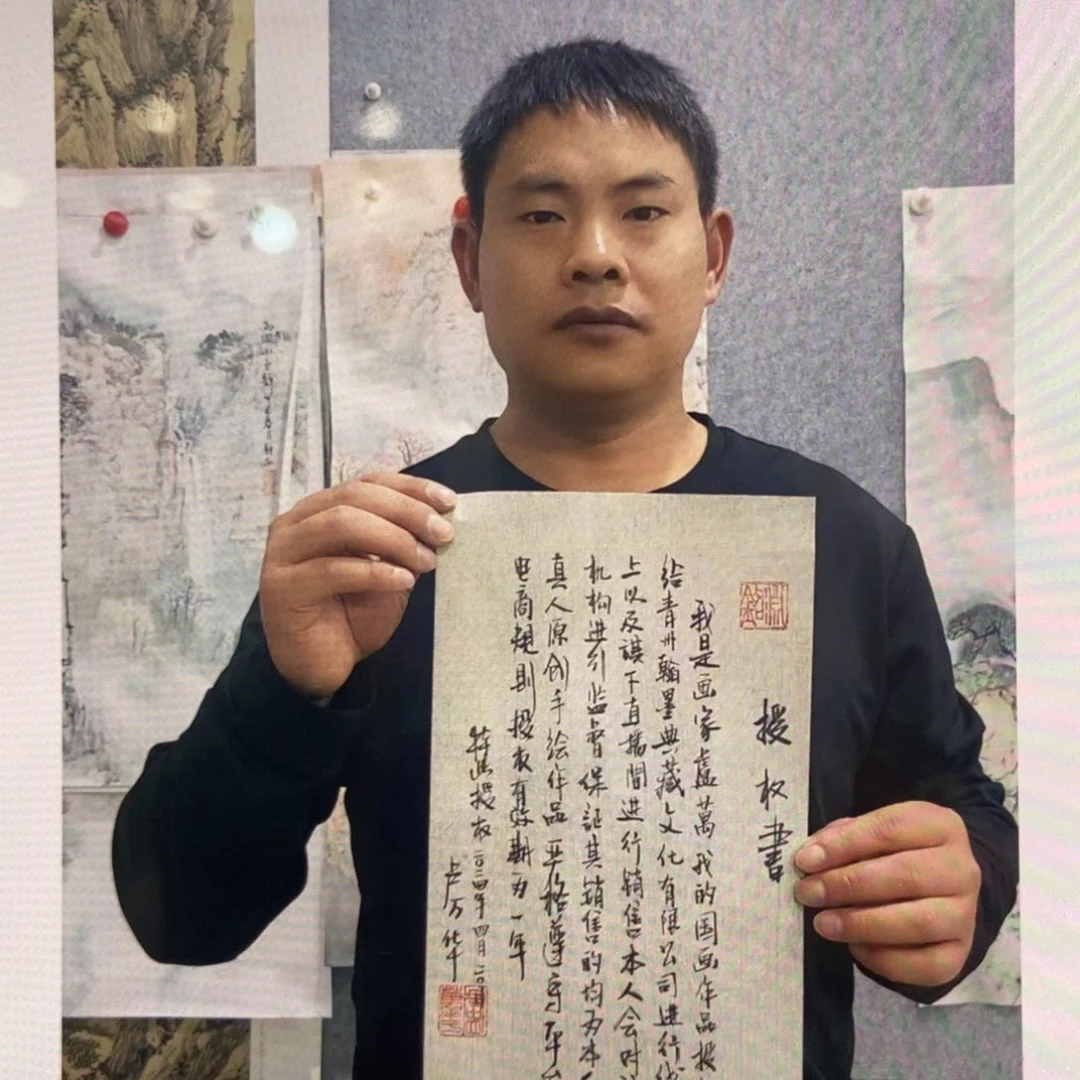 授权書
我是画家盧萬我的国画作品授
给青州翰墨典藏文化有限公司进行线
上以及旗下直播間进行销售本人会对该
机构进行监督保证其销售的均为本人
真人原创手绘作品严格遵守平台
电商规则授权有效期为一年
特此授权二〇二四年四月二〇
卢万华